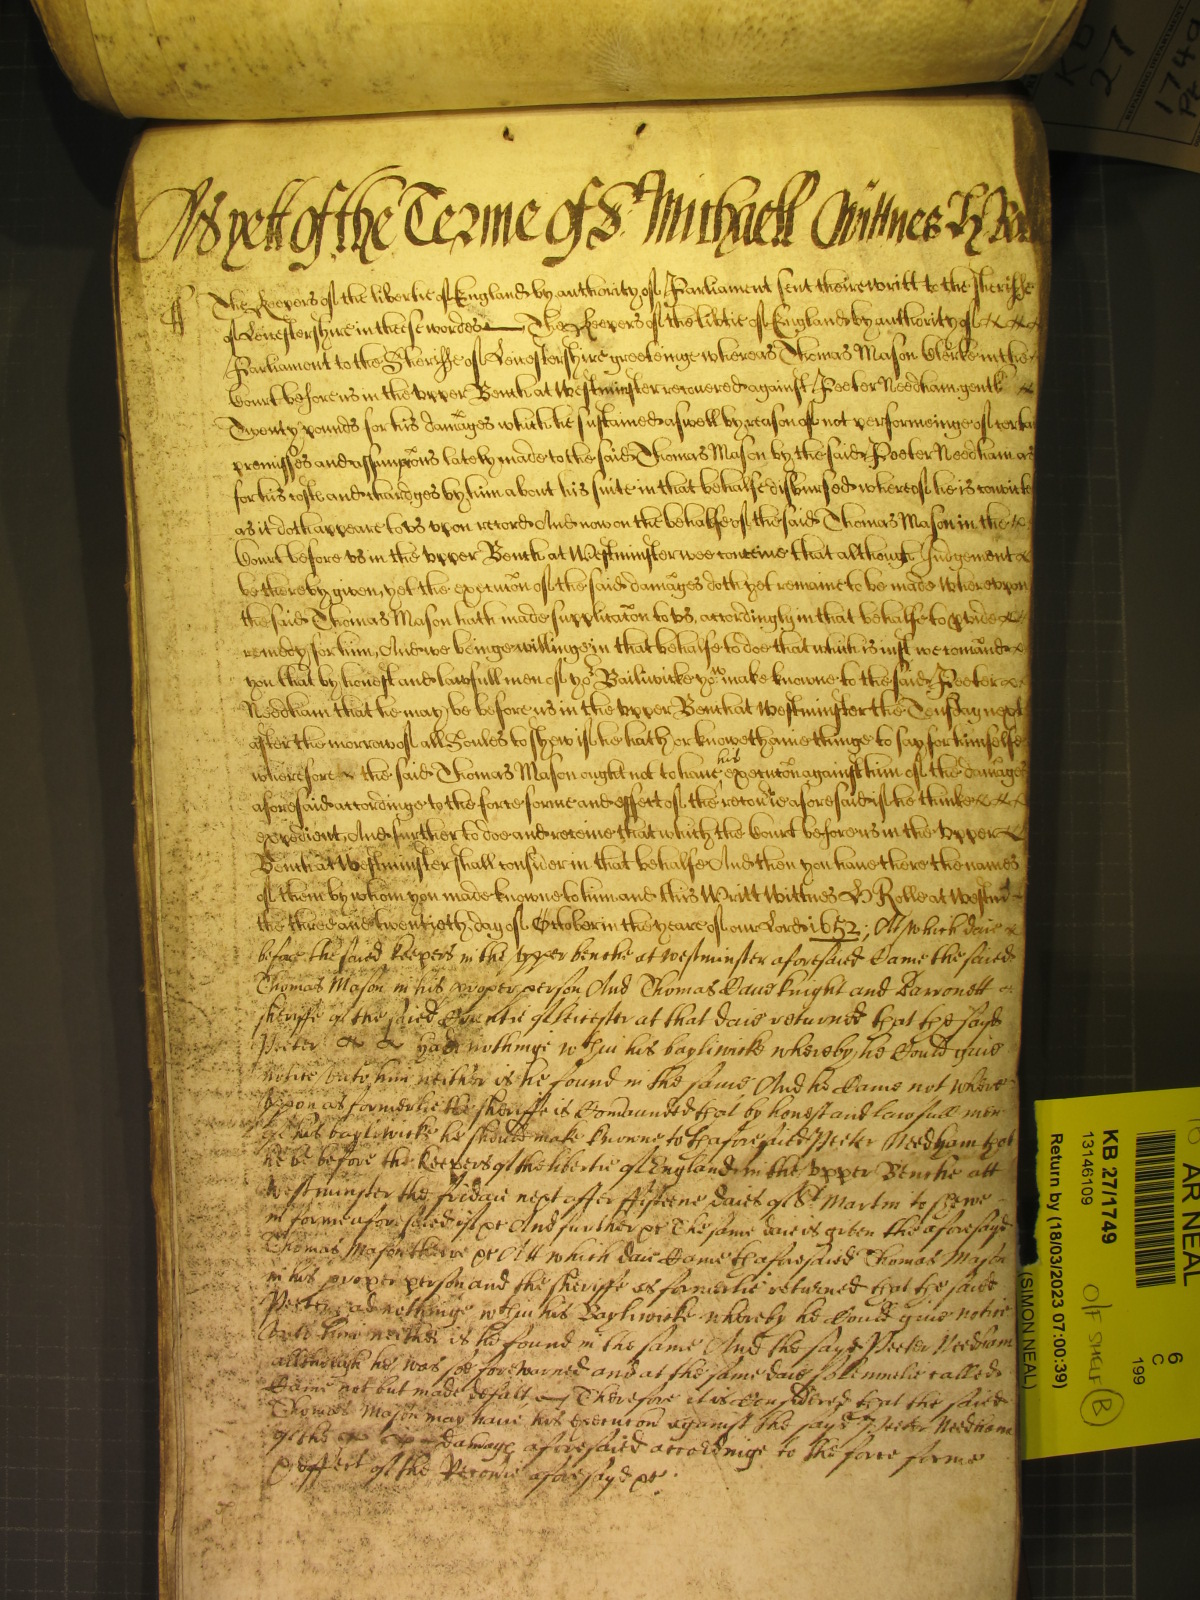 As yett of the Terme of St Michaell Wittnes H Rolle
The Keepers of the libertie of England by authority of Parliament sent theire writt to the Sheriffe
of Leicestershire in theise wordes The Keepers of the libtie of England by authority of
Parliament to the Sheriffe of Leicestershire greetinge whereas Thomas Mason Clerke in the
Court before us in the upper Bench at Westminster recovered against Peeter Needham gentl
Twenty pounds for his damages which he sustained aswell by reason of not performeinge of certai
premisses and assumptons lately made to the said Thomas Mason by the said Peeter Needham as
for his costs and chardges by him about his suite in that behalfe disbursed whereof he is convict
as it doth appeare to vs vpon record And now on the behalfe of the said Thomas Mason in the
Court before vs in the vpper Bench at Westminster wee conceive that although Judgement
be thereby given, yet the executon of the said damages doth yet remaine to be made Wherevpon
the said Thomas Mason hath made supplicaton to vs, accordingly in that behalfe to pvide
remedy for him, And we beinge willinge in that behalfe to doe that which is just we comaund
you that by honest and lawfull men of yor Bailiwicke you make knowne to the said Peeter
Needham that he may be before us in the vpper Bench at Westminster the Tuesday next
after the morrow of all Soules to shew if he hath or knoweth anie thinge to say for himselfe
wherefore the said Thomas Mason ought not to have his executon against him of the damages
aforesaid accordinge to the force forme and effect of the recovie aforesaid if he thinke
expedient, And further to doe and receive that which the Court before us in the vpper
Bench at Westminster shall consider in that behalfe And then you have there the names
of them by whom you made knowne to him and this Writt Wittnes H Rolle at Westmr
the three and twentieth day of October in the yeare of our Lord 1652; At which daie
before the saied keepers in the vpper benche at westminster aforesaied Came the saied
Thomas Mason in his proper person And Thomas Cave knight and Barronett
sheriffe of the saied Countie of Leicester at that daie returned that the sayd
Peeter had nothinge wthin his bayliwicke whereby he Could give
notice vnto him neither is he found in the same And he Came not where
vpon as formerlie the sheriffe is Commaunded that by honest and lawfull men
of his bayliwicke he should make knowne to thaforesaied Peeter Needham that
he be before the keepers of the libertie of England in the vpper Benche att
westminster the fridaie next after fifteene daies of St Martin to shewe
in forme aforesaied if &c And further &c The same daie is given the aforesayd
Thomas Mason there &c Att which daie Came thaforesaied Thomas Mason
in his proper person and the sheriffe as formerlie returned that the saied
Peeter had nothinge wthin his Bayliwicke whereby he Could give notice
vnto him neither is he found in the same And the sayd Peeter Needham
allthough he was soe forewarned and at the same daie solemnelie called
Came not but made default, Therefore it is Considered that the saied
Thomas Mason may have his execucon against the sayd Peeter Needham
of the damages aforesaied accordinge to the force forme
& effect of the Recovie aforesayd &c.
KB
27
1749
AR NEAL
6
C
199
KB 27/1749
13146109
Return by (18/03/2023 07:00:39)
(SIMON NEAL)
B